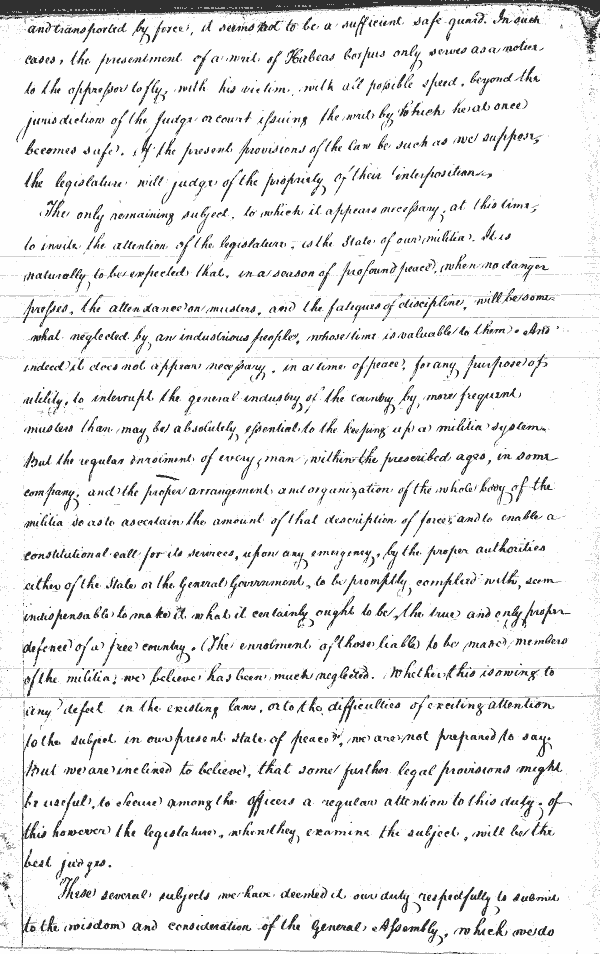 and transported by force, it seems not to be a sufficient safe guard. In such
cases, the presentment of a writ of Habeas Corpus only serves as a notice
to the oppressor to fly, with his victim, with all possible speed, beyond the
jurisdiction of the Judge or court issuing the writ by which he at once
becomes safe. If the present provisions of the law be such as we suppose,
the legislature will judge of the propriety of their interposition.
The only remaining subject, to which it appears necessary, at this time,
to invite the attention of the legislature, is the State of our militia. It is
naturally to be expected that, in a season of profound peace, when no danger
presses, the attendance on musters, and the fatigues of discipline, will be some-
what neglected by an industrious people, whose time is valuable to them. And
indeed it does not appear necessary, in a time of peace, for any purpose of
utility, to interrupt the general industry of the country by more frequent
musters than may be absolutely essential to the keeping up a militia system.
But the regular enrolment of every man within the prescribed ages, in some
company, and the proper arrangement and organization of the whole body of the
militia so as to ascertain the amount of that description of force, and to enable a
constitutional call for its services, upon any emergency, by the proper authorities
either of the State or the General Government, to be promptly complied with, seem
indispensable to make it what it certainly ought to be, the true and only proper
defence of a free country. The enrolment of those liable to be made members
of the militia, we believe has been much neglected. Whether this is owing to
any defect in the existing laws, or to the difficulties of exciting attention
to the subject in our present state of peace, we are not prepared to say.
But we are inclined to believe, that some further legal provisions might
be useful, to secure among the officers a regular attention to this duty. of
this however the legislature, when they examine the subject, will be the
best judges.
These several subjects we have deemed it our duty respectfully to submit
to the wisdom and consideration of the General Assembly, which we do